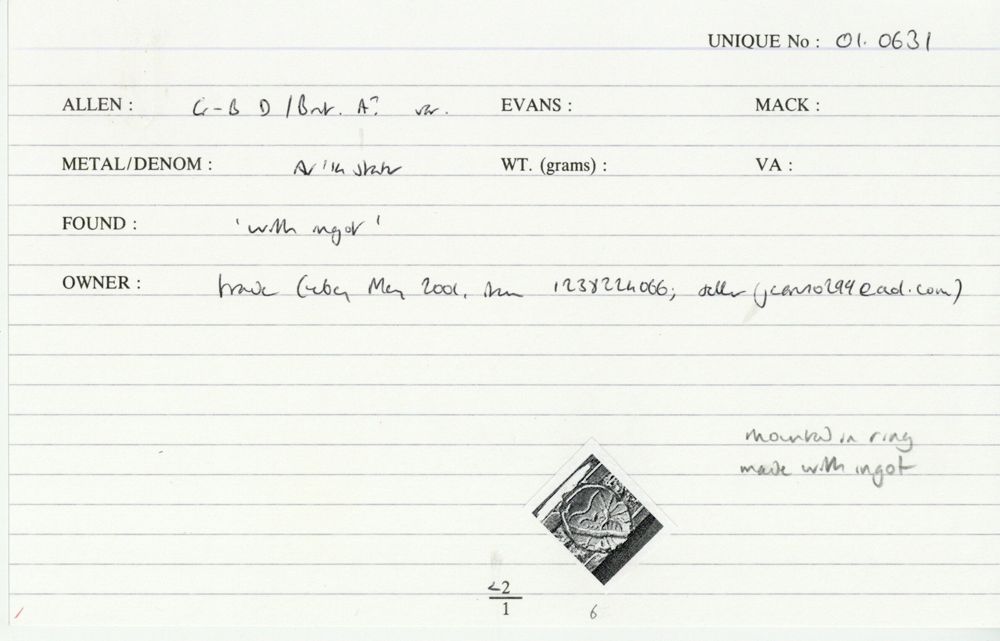 UNIQUE No : 01. 0631
ALLEN : G-B D / Brit. A? var. EVANS : MACK :
METAL/DENOM : AV 1/4 stater WT. (grams) : VA :
FOUND : 'with ingot'
OWNER : trade (eBay May 2001, item 1238224066; seller
mounted in ring
made with ingot
<2
1 6